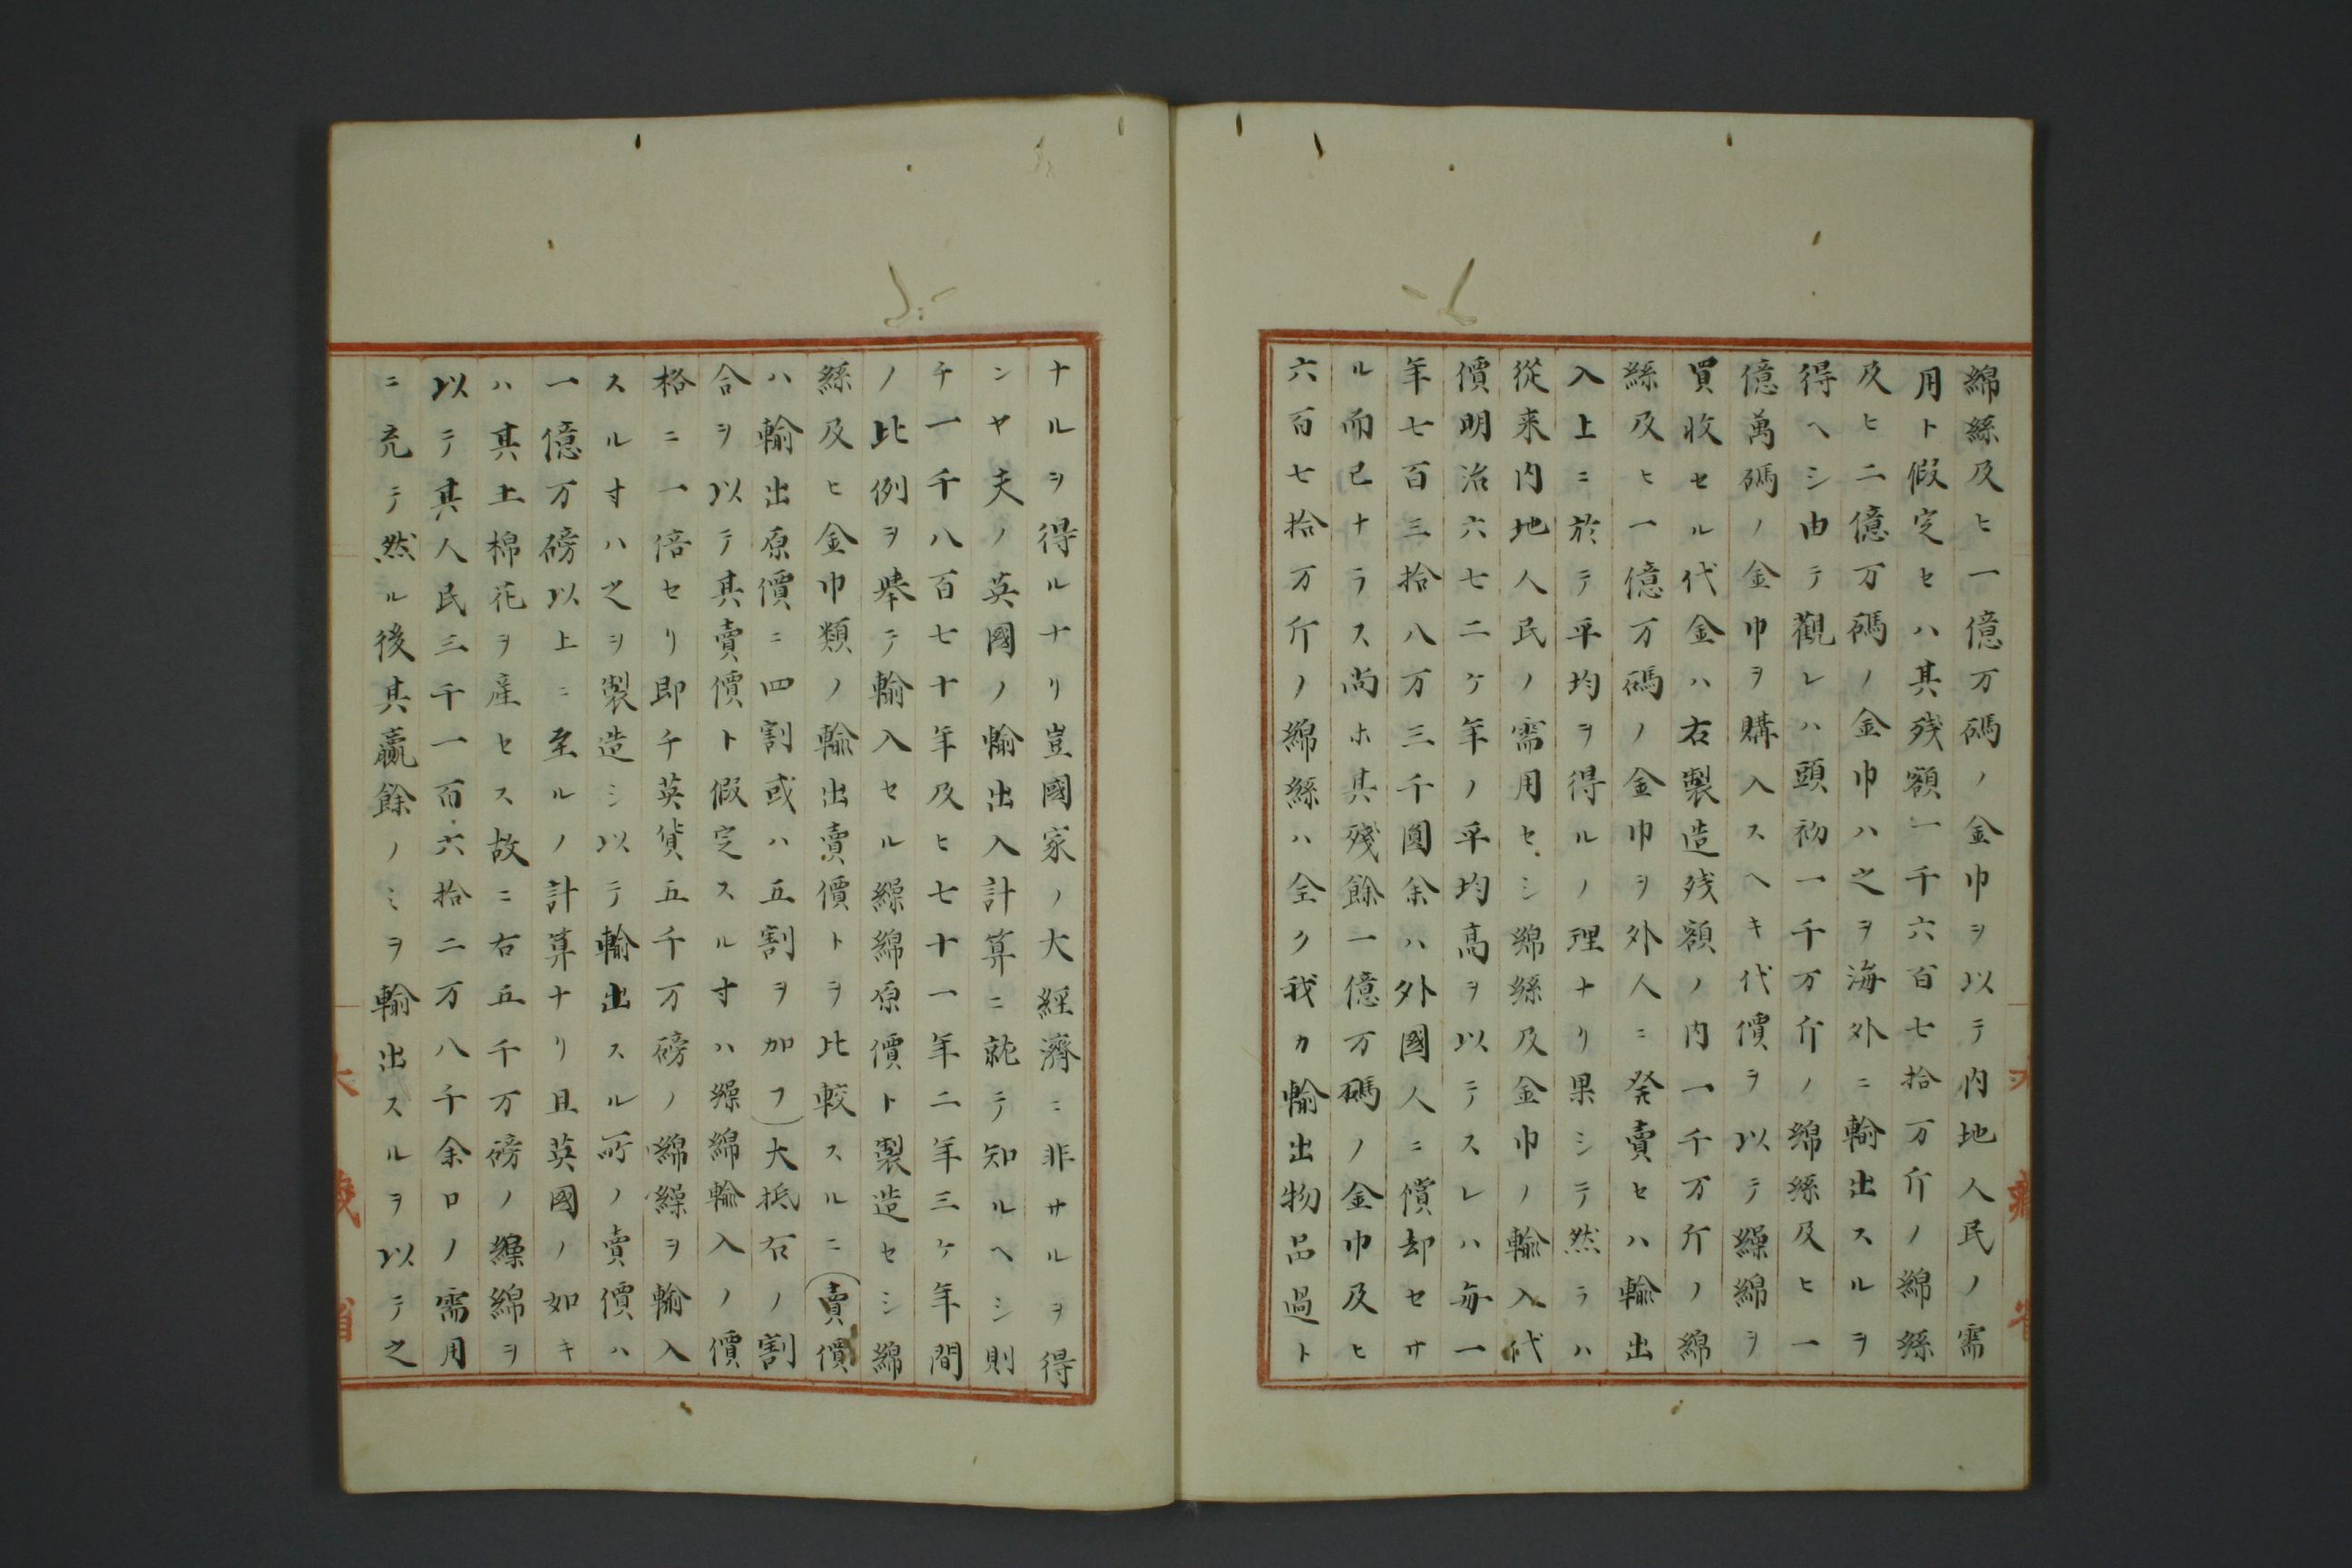 綿絲及ヒ一億万碼ノ金巾ヲ以テ内地人民ノ需
用ト假定セハ其残額一千六百七拾万斤ノ綿絲
及ヒ二億万碼ノ金巾ハ之ヲ海外ニ輸出スルヲ
得ヘシ由テ觀レハ頭初一千万斤ノ綿絲及ヒ一
億萬碼ノ金巾ヲ購入スヘキ代價ヲ以テ繰綿ヲ
買收セル代金ハ右製造残額ノ内一千万斤ノ綿
絲及ヒ一億万碼ノ金巾ヲ外人ニ発賣セハ輸出
入上ニ於テ平均ヲ得ルノ理ナリ果シテ然ラハ
從来内地人民ノ需用セシ綿絲及金巾ノ輸入代
價明治六七二ケ年ノ平均高ヲ以テスレハ毎一
年七百三拾八万三千圓余ハ外國人ニ償却セサ
ル而已ナラス尚ホ其殘餘一億万碼ノ金巾及ヒ
六百七拾万斤ノ綿絲ハ全ク我カ輸出物品過ト
ナルヲ得ルナリ豈國家ノ大經濟ニ非サルヲ得
ンヤ夫ノ英國ノ輸出入計算ニ就テ知ルヘシ則
チ一千八百七十年及ヒ七十一年二年三ケ年間
ノ比例ヲ擧テ輸入セル繰綿原價ト製造セシ綿
絲及ヒ金巾類ノ輸出賣價トヲ比較スルニ(賣價
ハ輸出原價ニ四割或ハ五割ヲ加フ)大抵右ノ割
合ヲ以テ其賣價ト假定スル寸ハ繰綿輸入ノ價
格ニ一倍セリ即チ英貨五千万磅ノ綿繰ヲ輸入
スル寸ハ之ヲ製造シ以テ輸出スル所ノ賣價ハ
一億万磅以上ニ至ルノ計算ナリ且英國ノ如キ
ハ其土棉花ヲ産セス故ニ右五千万磅ノ繰綿ヲ
以テ其人民三千一百六拾二万八千余口ノ需用
ニ充テ然ル後其贏餘ノミヲ輸出スルヲ以テ之